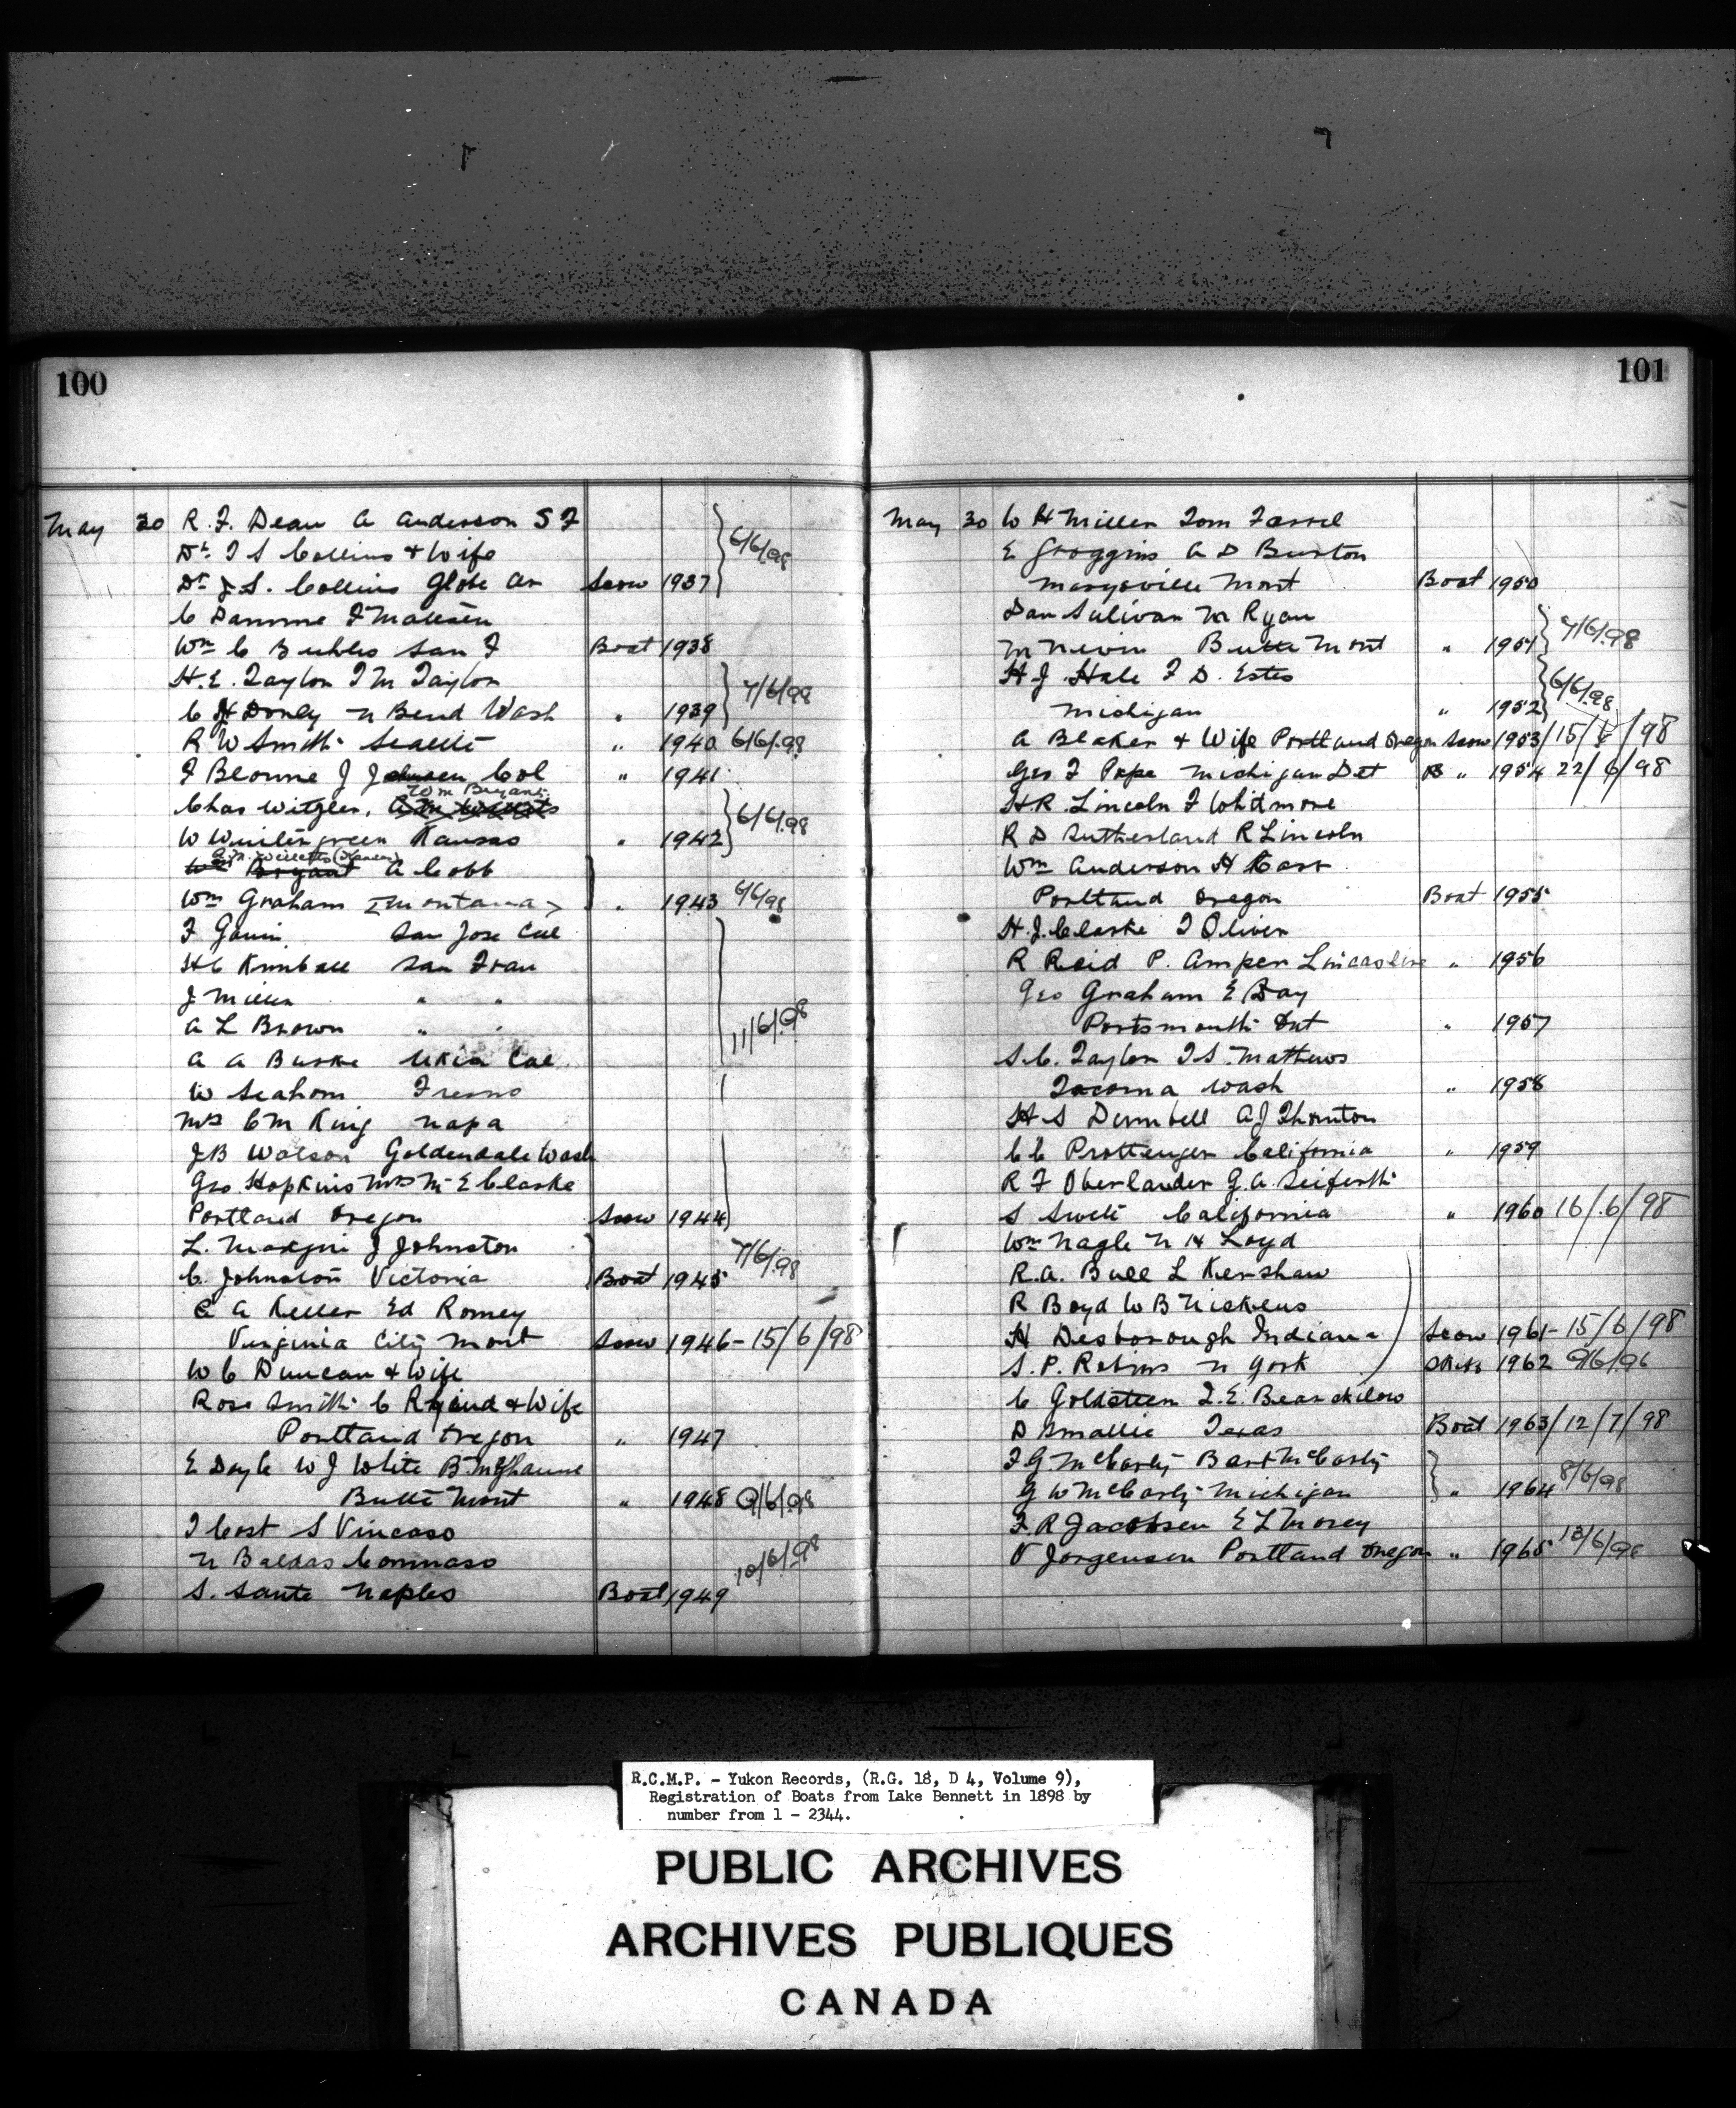 100
May 30 R. F. Dean A Anderson S F
Dr. T S Collins & Wife
Dr J. S. Collins Globe Ar Scow 1937 6/6/98
C Damme F Madsen
Wm C Buhles San F Boat 1938
H. E. Taylor T M Taylor
C H Donly N Bend Wash " 1939 7/6/98
R W Smith Seattle " 1940 6/6/98
F Blonne J Johnsen Col " 1941
Wm Bryant
Chas Witgler,
W Wintergreen Kansas " 1942 6/6/98
A M Willetts (Kansas)
Wm Bryant A Cobb
Wm Graham Montana " 1943 6/6/98
F Gavin San Jose Cal
H C Kimball San Fran
J Miller " "
A L Brown " " 11/6/98
A A Burke Ukia Cal
W Seahorn Fresno
Mrs C M King Napa
J B Watson Goldendale Wash
Geo Hopkins Mrs M E Clarke
Portland Oregon Scow 1944
L. J Johnston
C. Johnston Victoria Boat 1945 7/6/98
C A Keller Ed Romey
Virginia City Mont Scow 1946 - 15/6/98
W C Duncan & Wife
Rose Smith C & Wife
Portland Oregon " 1947
E Doyle W J White B
Butte Mont " 1948 9/6/98
T Cost S Vincaso
N Baldas Commaso
S. Sante Naples Boat 1949 10/6/98
101
May 30 W H Miller Tom Farrel
E Groggins A D Burton
Marysville Mont Boat 1950
Dan Sulivan M Ryan
M Nevin Butte Mont " 1951 7/6/98
H J Hale F D. Estes
Michigan " 1952 6/6/98
A Blaker & Wife Portland Oregon Scow 1953/15/6/98
Geo F Pope Michigan Det B " 1954 22/6/98
H. R. Lincoln F Whitmore
R D Sutherland R Lincoln
Wm Anderson H Carr
Portland Oregon Boat 1955
H. J. Clarke T Oliver
R Reid P. Amper Lincolshire " 1956
Geo Graham E Day
Portsmouth Ont " 1957
S. C. Taylor T S. Mathews
Tacoma Wash " 1958
H S Dumbell A J Thornton
C C Prottenger California " 1959
R F Oberlander G. A. Seiferth
S Swett California " 1960 16/6/98
Wm Nagle N H Loyd
R. A. Bull L Kershaw
R Boyd W B Nickens
H Desborough Indiana Scow 1961 - 15/6/98
S. P. Robins N York Skiff 1962 9/6/98
C Goldsteen T. E. Bearskilow
D Smallie Texas Boat 1963/12/7/98
F G McCarty Bert McCarty
G W McCarty Michigan " 1964 8/6/98
F. R Jacobsen E L Morey
V Jorgensen Portland Oregon " 1965 13/6/98
R.C.M.P. - Yukon Records, (R.G. 18, D 4, Volume 9),
Registration of Boats from Lake Bennett in 1898 by
number from 1 - 2344.
PUBLIC ARCHIVES
ARCHIVES PUBLIQUES
CANADA